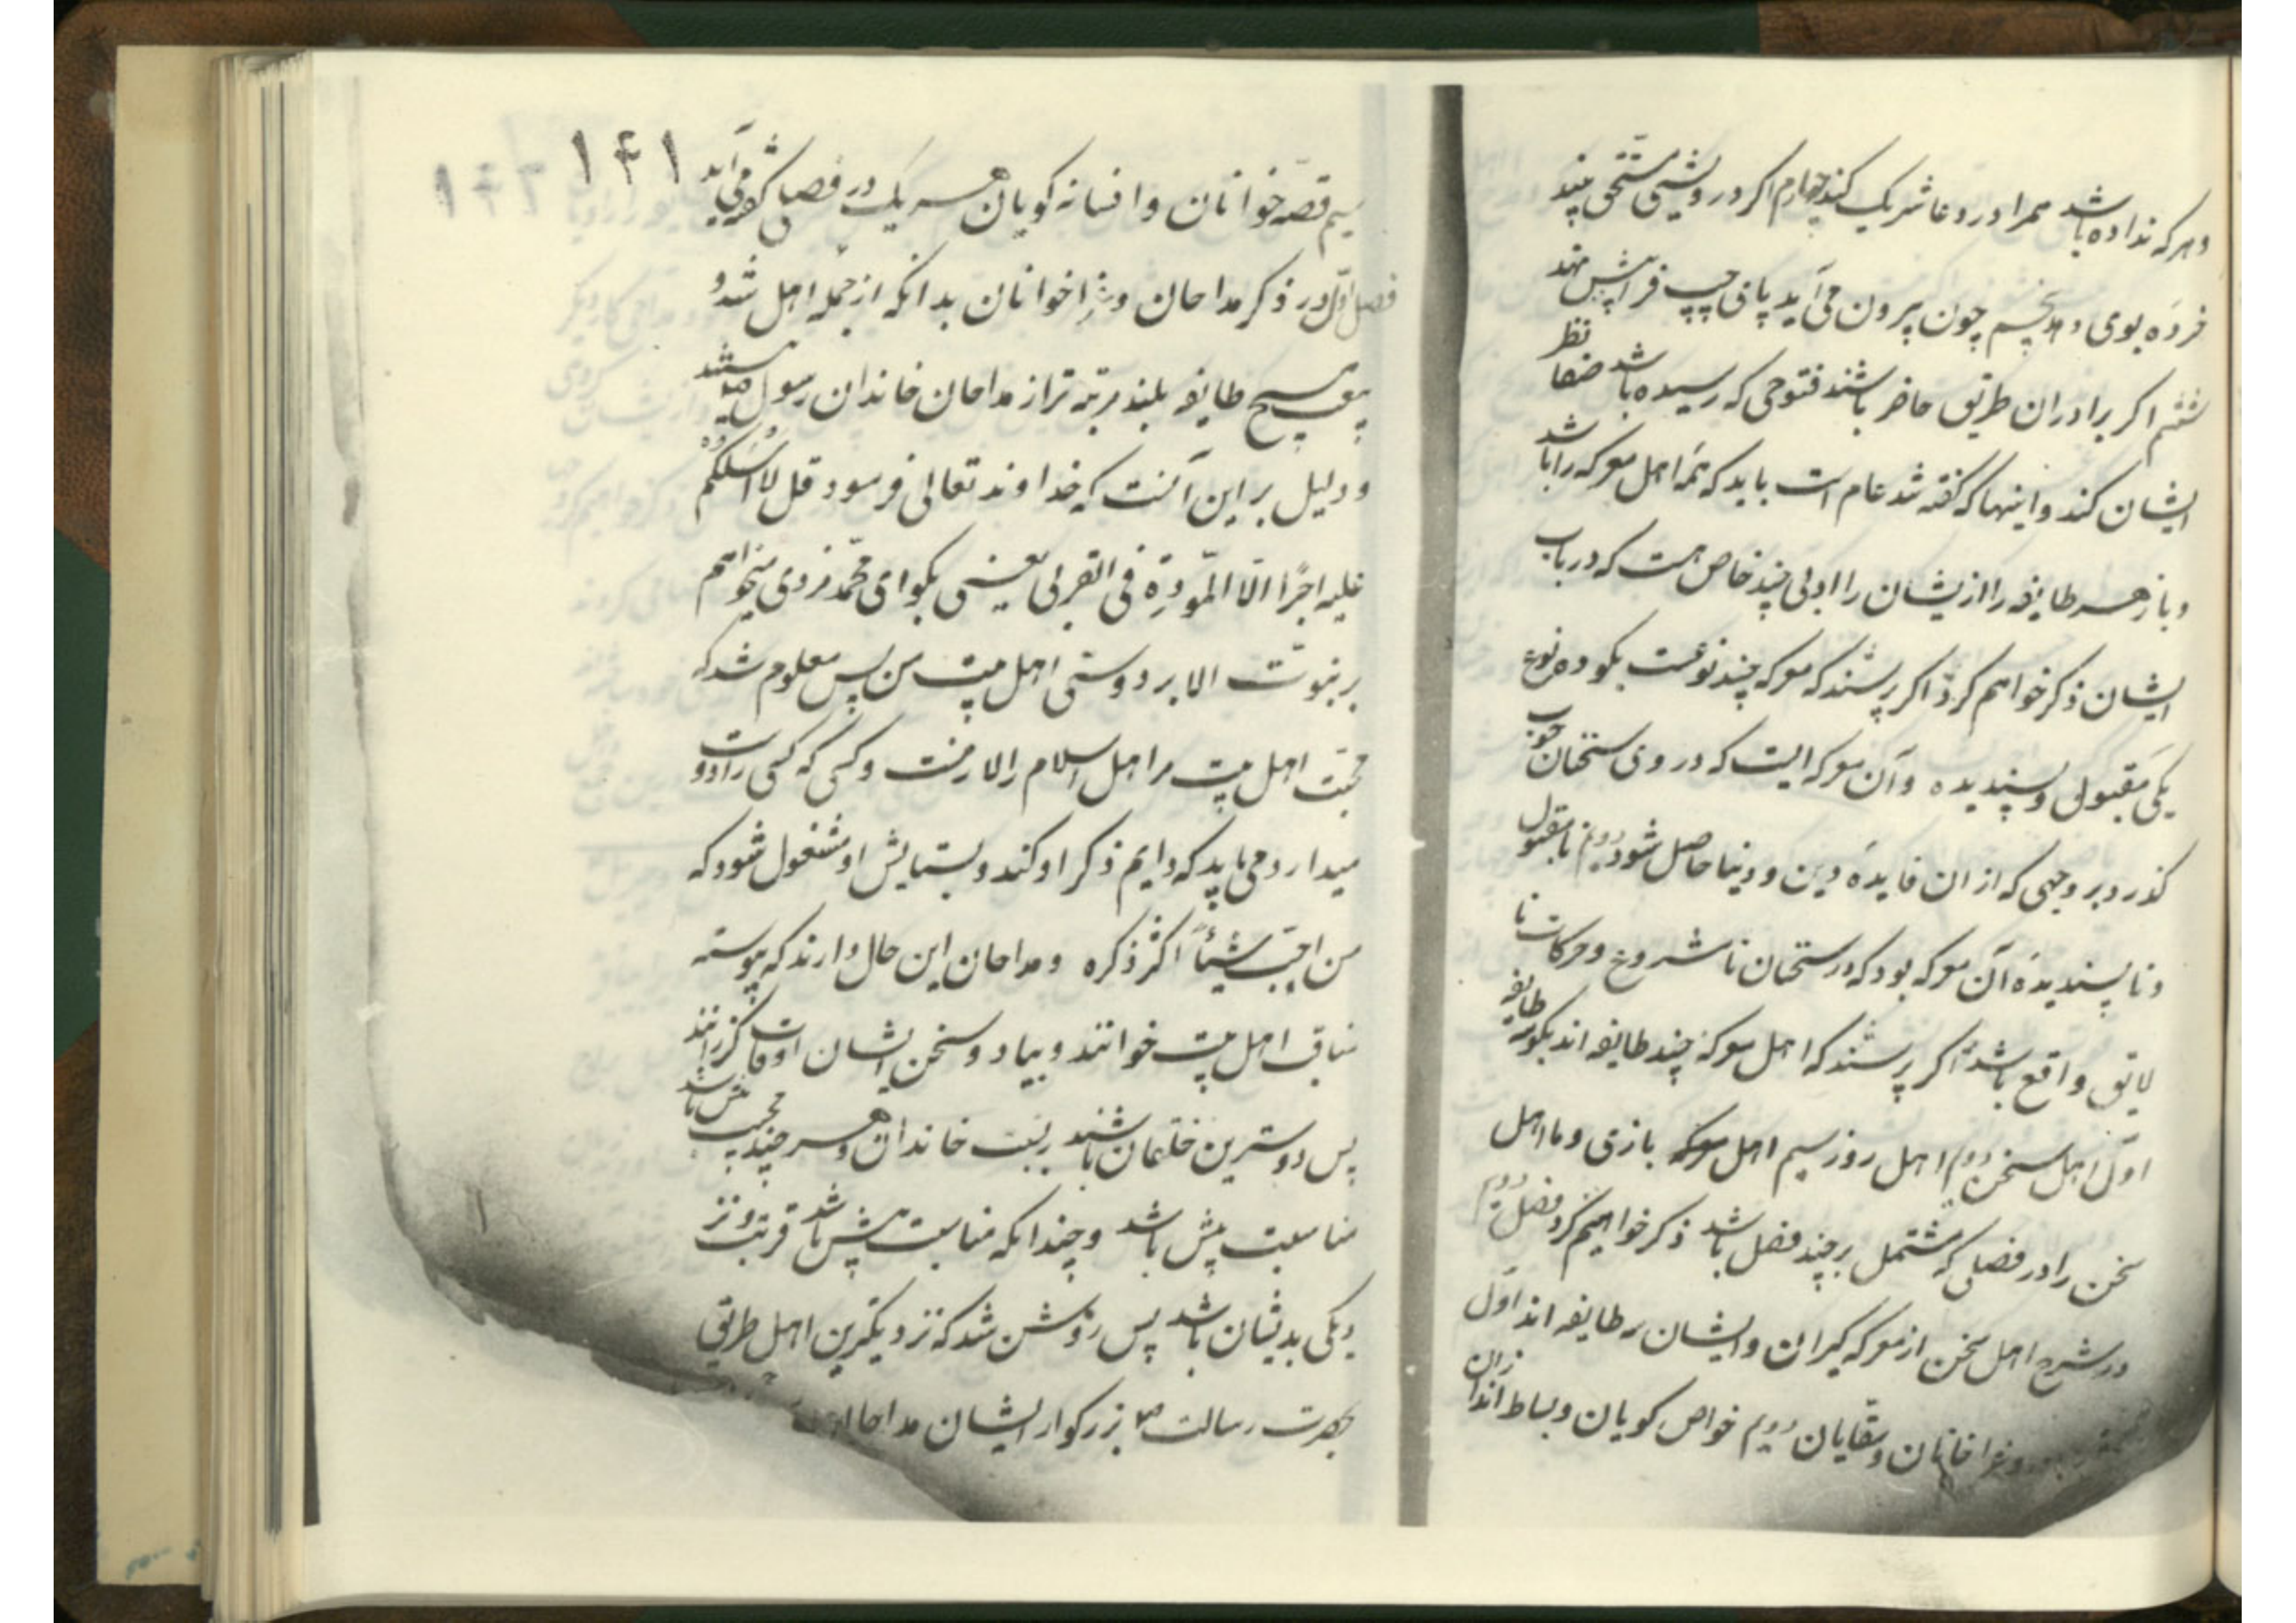 و هر که نداده باشد همرا در دعا شریک کند چهارم اگر درویشی مستحقی بیند
خرده بوی دهد پنجم چون بیرون می آید پای چپ فرا پیش نهد
ششم اگر برادران طریق حاضر باشند فتوحی که رسیده باشد صفا نظر
ایشان کند و اینها که گفته شد عام است باید که همه اهل معرکه را باشد
و باز هر طایفه را از یشان را ادبی چند خاص هست که در باب
ایشان ذکر خواهم کرد اگر پرسند که معرکه چند نوعست بگو دو نوع
یکی مقبول و پسندیده و آن معرکه ایست که در وی سخنان خوب
گذرد بر وجهی که از ان فایده دین و دنیا حاصل شود دویم نا مقبول
و نا پسندیده آن معرکه بود که در سخنان نا مشروع و حرکات نا
لایق واقع باشد اگر پرسند که اهل معرکه چند طایفه اند بگو سه طایفه
اول اهل سخن دوم اهل زور سیم اهل معرکه بازی و ما اهل
سخن را در فصلی که مشتمل بر چند فصل باشد ذکر خواهیم کرد فصل دویم
در شرح اهل سخن از معرکه گیران و ایشان سه طایفه اند اول
و غرا خانان و سقایان دویم خواص گویان و بساط اندازان
۱۴۱
سیم قصه خوانان و افسانه گویان هر یک در فصلی گفته می آید
فصل اول در ذکر مداحان و غرا خوانان بدانکه از جمله اهل شد و
بیعت هیچ طایفه بلند مرتبه تر از مداحان خاندان رسول نیستند
و دلیل بر این آنست که خداوند تعالی فرمود قل لا اسئلکم
علیه اجرًا الّا المودة فی القربی یعنی بگو ای محمد مزدی نمیخواهم
بر نبوت الا بر دوستی اهل بیت من پس معلوم شد که
محبت اهل بیت مر اهل اسلام را لازمست و کسی که کسی را دوست
میدارد می باید که دایم ذکر او کند و بستایش او مشغول شود که
من احب شیئاً اکثر ذکره و مداحان این حال دارند که پیوسته
مناقب اهل بیت خوانند و بیاد و سخن ایشان اوقات گذرانند
پس دوسترین خلقان باشند بنسبت خاندان و هر چند محبت بیش باشد
مناسبت بیش باشد و چندانکه مناسبت بیش باشد قربت و نز
دیکی بدیشان باشد پس روشن شد که نزدیکترین اهل طریق
بحضرت رسالت ص بزرگوار ایشان مداحان